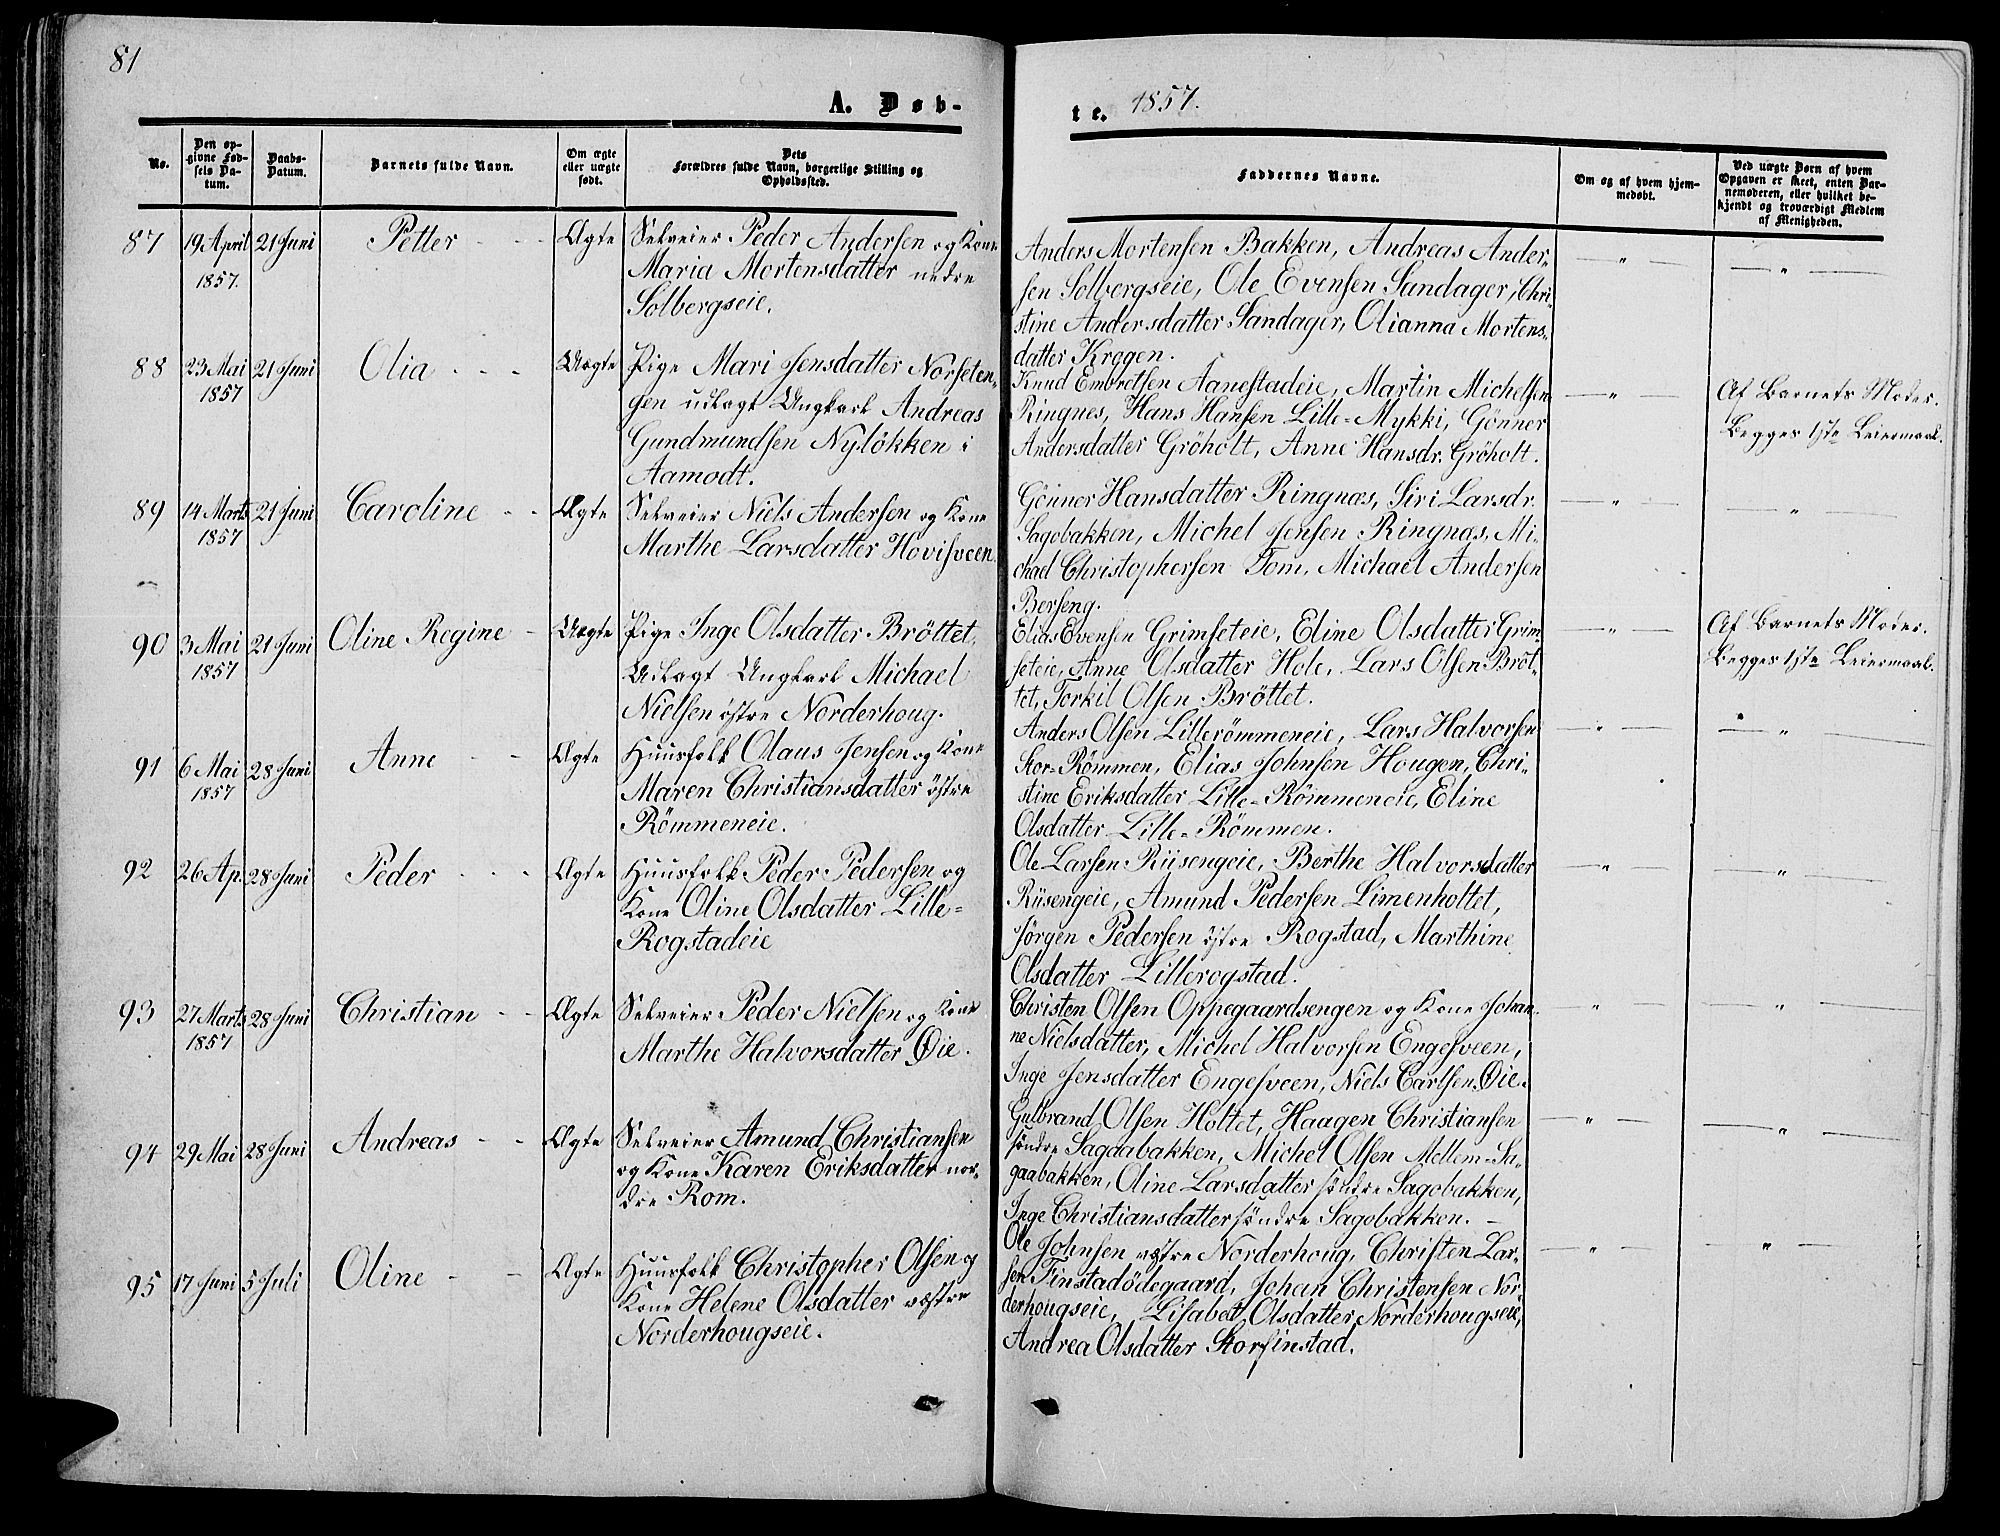 81
A. Døb-
te. 1857.
No.
Den op-
givne Fød-
sels Da-
tum.
Daabs-
Datum.
Barnets fulde Navn.
Om ægte
eller uægte
født.
Dets
Forældres fulde Navn, borgerlige Stilling og
Opholdssted.
Faddernes Navne.
Om og af hvem hjem-
medøbt.
Ved uægte Børn af hvem
Opgaven er skeet, enten Bar-
nemoderen, eller hvilket be-
kjendt og troværdigt Medlem
af Menigheden.
87 19 April 21 Juni Petter - - - Ægte Selveier Peder Andersen og Kone
1857.
Maria Mortensdatter nedre
Solbergseie.
Anders Mortensen Bakken, Andreas Ander-
sen Solbergseie, Ole Evensen Sandager, Chri-
stine Andersdatter Sandager, Olianna Mortens-
datter Krogen.
— " — — " —
88 23 Mai 21 Juni Olia - - - Uægte Pige Mari Jensdatter Norseten-
1857
sen udlagt Ungkarl Andreas
Gundmundsen Nylökken i
Aamodt.
Knud Embretsen Aanestadeie, Martin Michelsen
Ringnes, Hans Hansen Lille-Mykki, Gönner
Andersdatter Gröholt, Anne Hansdr. Gröholt.
— " —
Af Barnets Moder.
Begges 1ste Leiermaal.
89 14 Marts 21 Juni Caroline - - Ægte Selveier Niels Andersen og Kone
1857
Marthe Larsdatter Hovisveen.
Gönner Hansdatter Ringnæs, Siri Larsdr.
Sagobakken, Michel Jensen Ringnæs, Mi-
chael Christophersen Tom, Michael Andersen
Berseng.
— " — — " —
90 3 Mai 21 Juni Oline Regine - Uægte Pige Inge Olsdatter Bröttet,
1857
Udlagt Ungkarl Michael
Nielsen östre Norderhoug.
Elias Evensen Grimseteie, Eline Olsdatter Grim-
seteie, Anne Olsdatter Hole, Lars Olsen Bröt-
tet, Torkil Olsen Bröttet.
— " —
Af Barnets Moder.
Begges 1ste Leiermaal.
91 6 Mai 28 Juni Anne - - Ægte Huusfolk Olaus Jensen og Kone
1857
Maren Christiansdatter östre
Römmeneie.
Anders Olsen Lillerömmeneie, Lars Halvorsen
Stor-Römmen, Elias Johnsen Hougen, Chri-
stine Eriksdatter Lille-Römmeneie, Eline
Olsdatter Lille-Römmen.
— " — — " —
92 26 Ap. 28 Juni Peder - - - Ægte Huusfolk Peder Pedersen og
Kone Oline Olsdatter Lille-
Rogstadeie
Ole Larsen Riisengeie, Berthe Halvorsdatter
Riisengeie, Amund Pedersen Limenholtet,
Jörgen Pedersen östre Rogstad, Marthine
Olsdatter Lillerogstad.
— " — — " —
93 27 Marts 28 Juni Christian - - Ægte Selveier Peder Nielsen og Kone
1857
Marthe Halvorsdatter Øie.
Christen Olsen Oppegaardsengen og Kone Johan-
ne Nielsdatter, Michel Halvorsen Engesveen,
Inge Jensdatter Engesveen, Niels Carlsen Øie.
" — — " —
94 29 Mai 28 Juni Andreas - - Ægte Selveier Amund Christiansen
og Kone Karen Eriksdatter nor-
dre Rom.
Gulbrand Olsen Holtet, Haagen Christiansen
söndre Sagaabakken, Michel Olsen Mellem-Sa-
gaabakken, Oline Larsdatter söndre Sagobakken,
Inge Christiansdatter söndre Sagobakken. —
" — — " —
95 17 Juni 5 Juli Oline - - Ægte Huusfolk Christopher Olsen og
Kone Helene Olsdatter væstre
Norderhougseie.
Ole Johnsen væstre Norderhoug, Christen Lar-
sen Finstadödegaard, Johan Christensen Nor-
derhougseie, Lisabet Olsdatter Norderhougseie,
Andrea Olsdatter Storfinstad.
— " — — " —